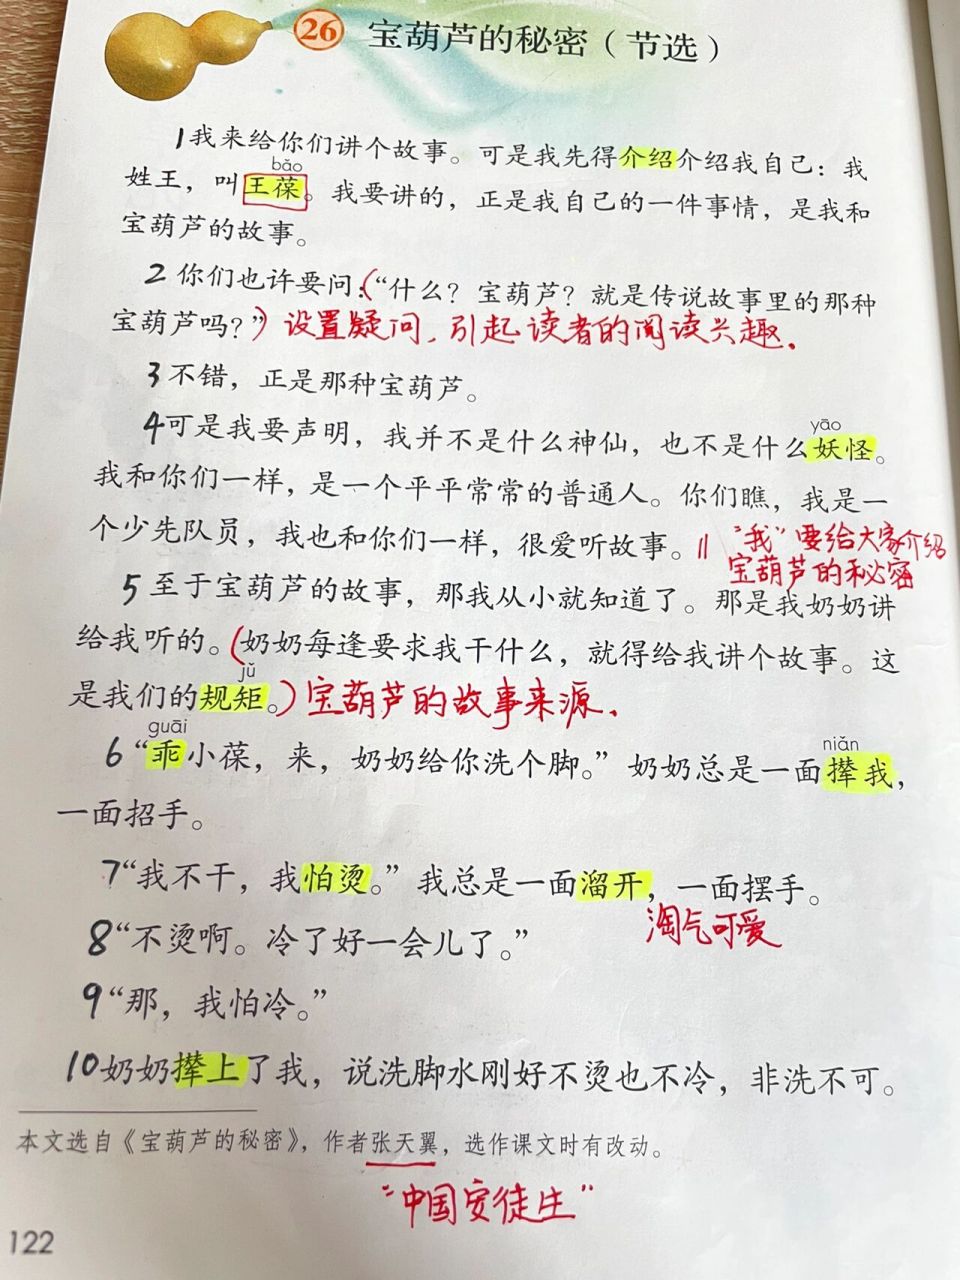 26 宝葫芦的秘密（节选）
1我来给你们讲个故事。可是我先得介绍介绍我自己：我
bǎo
姓王，叫王葆。我要讲的，正是我自己的一件事情，是我和
宝葫芦的故事。
2 你们也许要问：(“什么？宝葫芦？就是传说故事里的那种
宝葫芦吗？”) 设置疑问，引起读者的阅读兴趣.
3 不错，正是那种宝葫芦。
yāo
4可是我要声明，我并不是什么神仙，也不是什么妖怪。
我和你们一样，是一个平平常常的普通人。你们瞧，我是一
个少先队员，我也和你们一样，很爱听故事。|| “我”要给大家介绍
宝葫芦的秘密
5 至于宝葫芦的故事，那我从小就知道了。那是我奶奶讲
给我听的。(奶奶每逢要求我干什么，就得给我讲个故事。这
jǔ
是我们的规矩。) 宝葫芦的故事来源.
guāi niǎn
6 “乖小葆，来，奶奶给你洗个脚。”奶奶总是一面撵我，
一面招手。
7“我不干，我怕烫。”我总是一面溜开，一面摆手。
淘气可爱
8“不烫啊。冷了好一会儿了。”
9“那，我怕冷。”
10奶奶撵上了我，说洗脚水刚好不烫也不冷，非洗不可。
本文选自《宝葫芦的秘密》，作者张天翼，选作课文时有改动。
“中国安徒生”
122